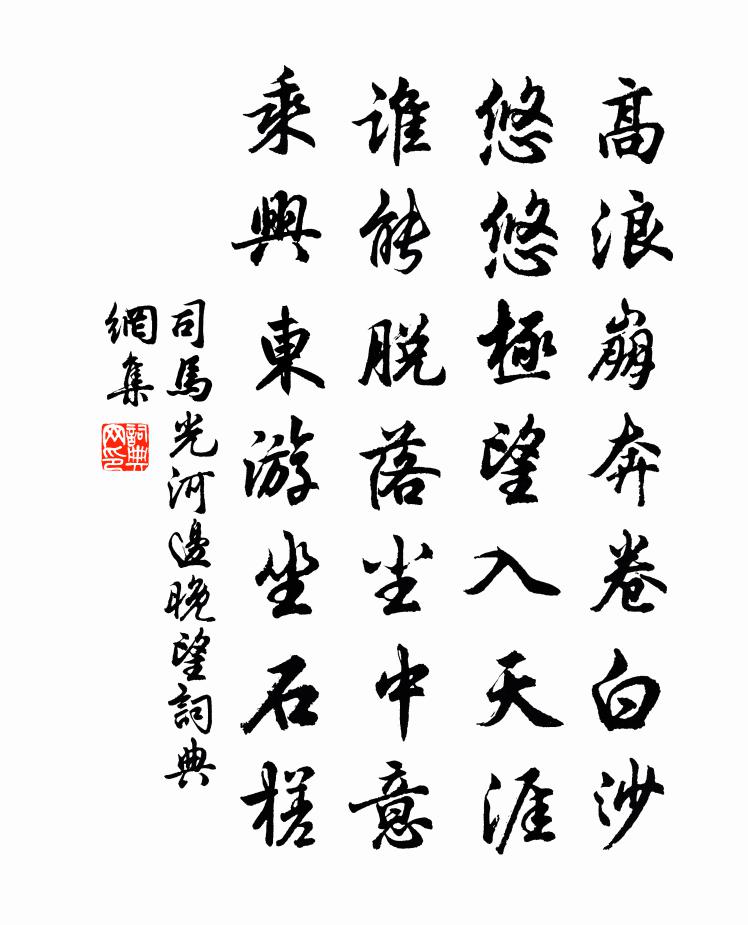 高浪崩奔卷白沙
悠悠極望入天涯
誰能脱落塵中意
乘興東游坐石槎
司馬光河邊晚望詞典
網集
詞典
网印